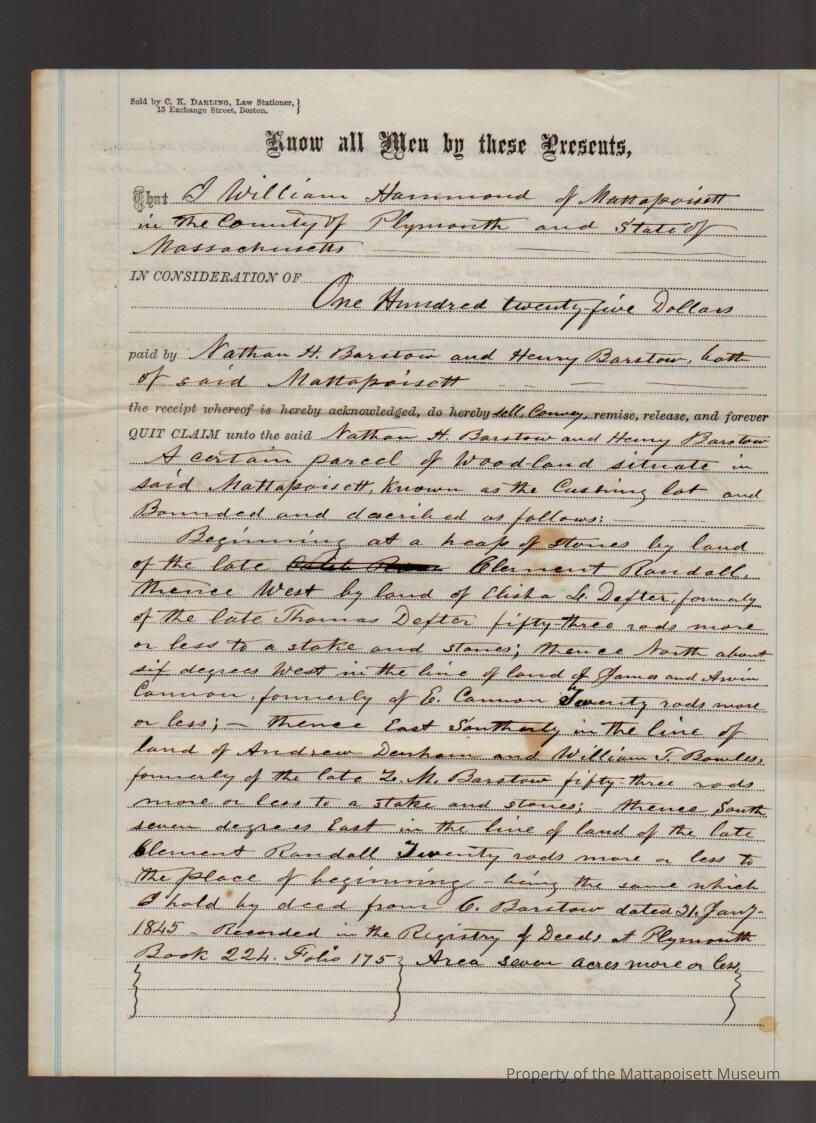 Sold by C. K. DARLING, Law Stationer,}
15 Exchange Street, Boston.
Know all Men by these Presents,
That I William Hammond of Mattapoisett
in the County of Plymouth and State of
Massachusetts
IN CONSIDERATION OF
One Hundred twenty five Dollars
paid by Nathan H. Barstow and Henry Barstow, both
of said Mattapoisett
the receipt whereof is hereby acknowledged, do hereby sell, Convey, remise, release, and forever
QUIT CLAIM unto the said Nathan H. Barstow and Henry Barstow
A certain parcel of Wood-land situate in
said Mattapoisett, Known as the Cushing lot and
Bounded and described as follows: —
Beginning at a heap of stones by land
of the late Clement Randall,
thence West by land of Elisha L. Dexter, formerly
of the late Thomas Dexter fifty-three rods more
or less to a stake and stones; thence North about
six degrees West in the line of land of James and
Cannon, formerly of E. Cannon Twenty rods more
or less; — thence East Southerly in the line of
land of Andrew Denham and William T. Bowles,
formerly of the late Z. M. Barstow fifty-three rods
more or less to a stake and stones; — thence South
seven degrees East in the line of land of the late
Clement Randall Twenty rods more or less to
the place of beginning — being the same which
I hold by deed from C. Barstow dated 31. Jany.
1845 — Recorded in the Registry of Deeds at Plymouth
Book 224. Folio 175 } Area seven acres more or less,
Property of the Mattapoisett Museum